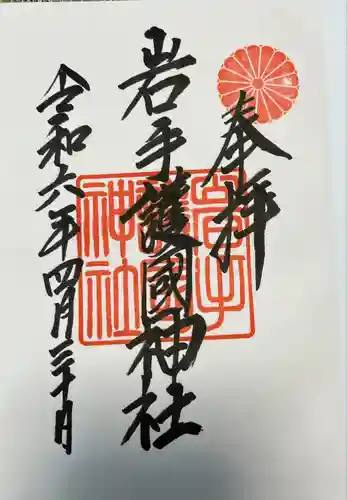 奉拝
岩手護國神社
令和六年四月三十日
岩手
護國
神社